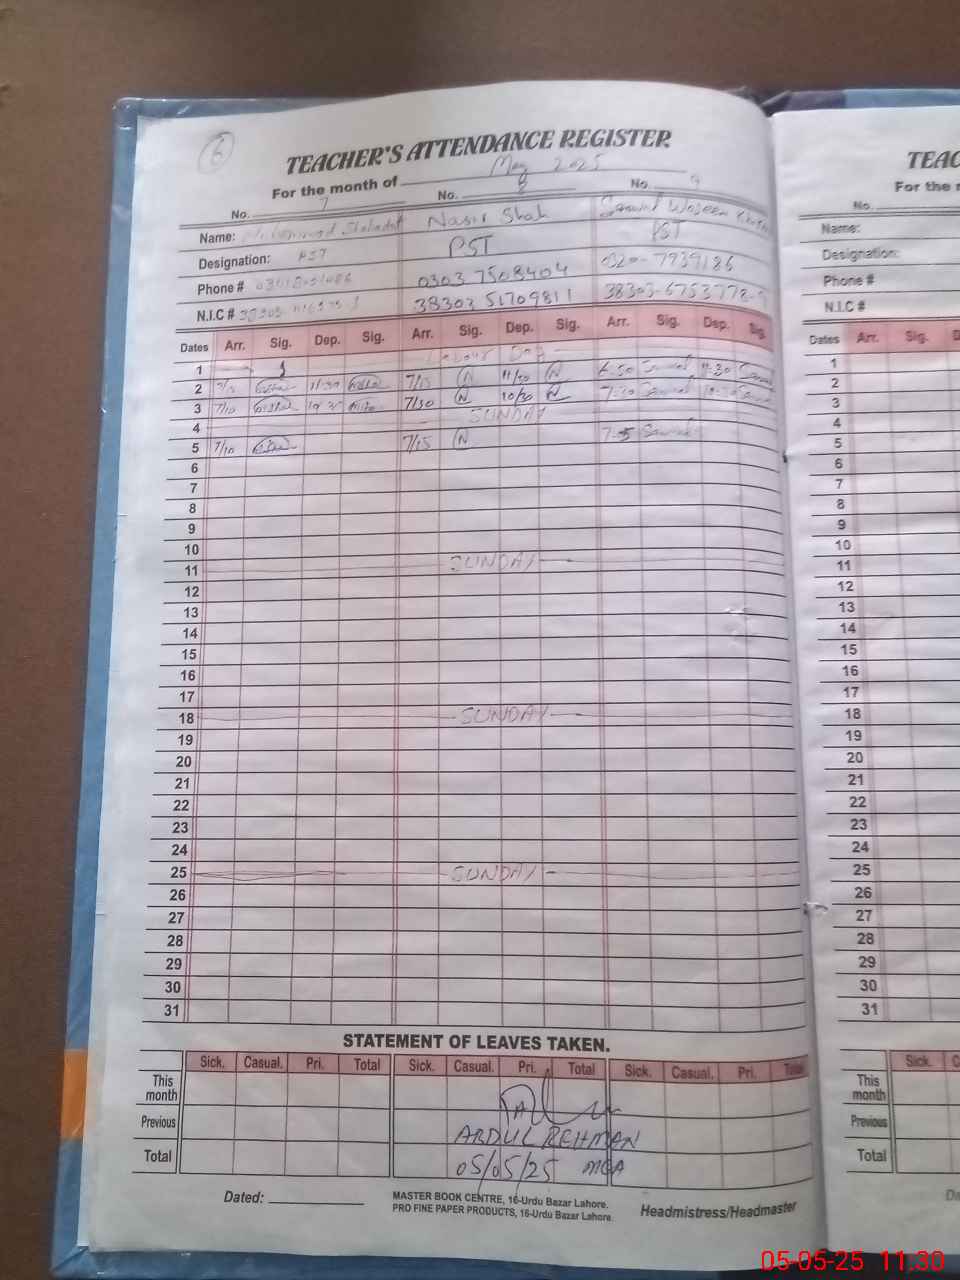 6
TEACHER'S ATTENDANCE REGISTER
For the month of May 2025
No. 7 No. 8 No. 9
Name: Nasir Shah Waseem
Designation: PST PST PST
Phone # 0303 7508404
N.I.C # 38303 51709811
Dates Arr. Sig. Dep. Sig. Arr. Sig. Dep. Sig. Arr. Sig. Dep. Sig.
1 Labour Day
2 11:30 7/15 N 11/30 N 6:50 11:30
3 7/10 7/30 N 10/30 N 7:30
4 SUNDAY
5 7/10 7/15 N
6
7
8
9
10
11 SUNDAY
12
13
14
15
16
17
18 SUNDAY
19
20
21
22
23
24
25 SUNDAY
26
27
28
29
30
31
STATEMENT OF LEAVES TAKEN.
Sick. Casual. Pri. Total Sick. Casual. Pri. Total Sick. Casual. Pri. Total
This month
Previous ABDUL REHMAN
Total 05/05/25 MEA
Dated:
MASTER BOOK CENTRE, 16-Urdu Bazar Lahore.
PRO FINE PAPER PRODUCTS, 16-Urdu Bazar Lahore.
Headmistress/Headmaster
TEAC
For the
No.
Name:
Designation:
Phone #
N.I.C #
Dates Arr. Sig. D
1
2
3
4
5
6
7
8
9
10
11
12
13
14
15
16
17
18
19
20
21
22
23
24
25
26
27
28
29
30
31
Sick. C
This month
Previous
Total
Da
05-05-25 11.30